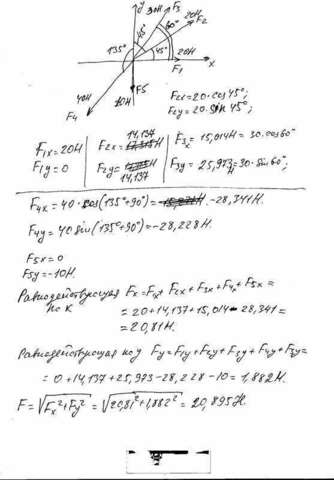 y
30H F₃
20H
F₂
45° 60°
135° 45° 20H
F₁ x
F5
40H 10H
F₄
F₂ₓ=20·cos45°;
F₂y=20·sin45°;
F₁ₓ=20H F₂ₓ=14,137 F₃ₓ=15,014H=30·cos60°
F₁y=0 F₂y=14,137 F₃y=25,973H=30·sin60°;
F₄ₓ=40·cos(135°+90°)=-28,341H.
F₄y=40 sin(135°+90°)=-28,228H.
F5ₓ=0
F5y=-10H.
Равнодействующая Fₓ=F₁ₓ+F₂ₓ+F₃ₓ+F₄ₓ+F5ₓ=
по х =20+14,137+15,014-28,341=
=20,81H.
Равнодействующая по y Fy=F₁y+F₂y+F₃y+F₄y+F5y=
=0+14,137+25,973-28,228-10=1,882H.
F=√Fₓ²+Fy²=√20,81²+1,882²=20,895H.